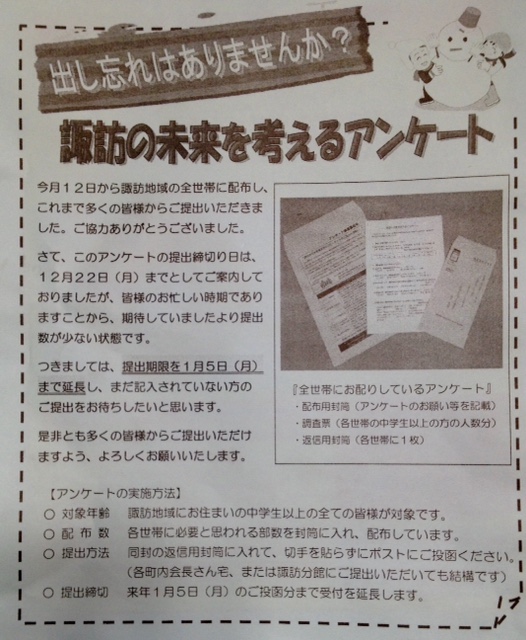 出し忘れはありませんか？
諏訪の未来を考えるアンケート
今月１２日から諏訪地域の全世帯に配布し、
これまで多くの皆様からご提出いただきま
した。ご協力ありがとうございました。
さて、このアンケートの提出締切り日は、
１２月２２日（月）までとしてご案内して
おりましたが、皆様のお忙しい時期であり
ますことから、期待していましたより提出
数が少ない状態です。
つきましては、提出期限を１月５日（月）
まで延長し、まだ記入されていない方の
ご提出をお待ちしたいと思います。
是非とも多くの皆様からご提出いただけ
ますよう、よろしくお願いいたします。
『全世帯にお配りしているアンケート』
・配布用封筒（アンケートのお願い等を記載）
・調査票（各世帯の中学生以上の方の人数分）
・返信用封筒（各世帯に１枚）
【アンケートの実施方法】
○ 対象年齢　諏訪地域にお住まいの中学生以上の全ての皆様が対象です。
○ 配 布 数　各世帯に必要と思われる部数を封筒に入れ、配布しています。
○ 提出方法　同封の返信用封筒に入れて、切手を貼らずにポストにご投函ください。
（各町内会長さん宅、または諏訪分館にご提出いただいても結構です）
○ 提出締切　来年１月５日（月）のご投函分まで受付を延長します。